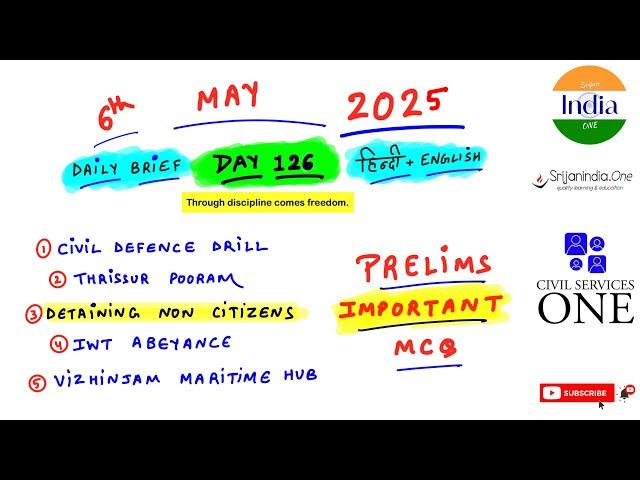 6th MAY 2025
DAILY BRIEF DAY 126 हिन्दी + ENGLISH
Through discipline comes freedom.
① CIVIL DEFENCE DRILL
② THRISSUR POORAM
③ DETAINING NON CITIZENS
④ IWT ABEYANCE
⑤ VIZHINJAM MARITIME HUB
PRELIMS
IMPORTANT
MCQs
Srijan
India
ONE
SrijanIndia.One
quality learning & education
CIVIL SERVICES
ONE
SUBSCRIBE